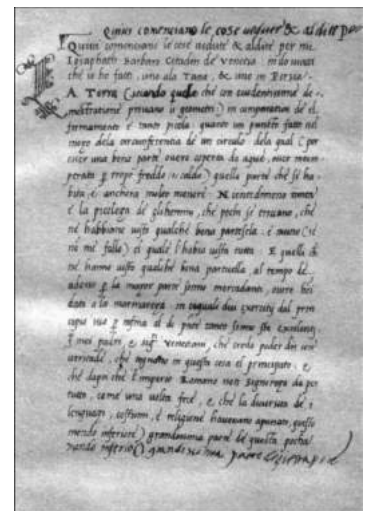 Quiui comenciano le cose uedute & aldite per
Quiui comenciano le cose uedute & aldite per mi
Iosaphath Barbaro Citadin de Venetia in do uiazi
che io ho fatti, uno ala Tana, & uno in Persia.
La Terra (quando quelo che con euidentissime de
mostratione prouano i geometri) in comparation del
firmamento è tanto picola quanto un punto fatto nel
mezo dela circonferentia de un circulo dela qual (per
esser una bona parte ouero coperta da aque, ouer intem
perata per tropo freddo o caldo) quella parte che se ha
bita, è anchora molto menore. Nientedimeno tanta
è la picoleza de gli homeni, che pochi se trouano, che
ne habbiano uisto qualche bona particela: è niuno (se
no me fallo) el quale l'habia uista tutta. E quelli che
ne hanno uisto qualche bona particella al tempo de
adesso per la mazor parte sono mercadanti, ouero
dati a la marinareza in i quali dui exercitij dal prin
cipio suo per insina al di
I miei padri, e Venetiani, che credo poder dir con
ueritade, che in questa cosa el principato. E
che dapo che l'imperio Romano non signoreza da per
tutto, come una uolta fece, e che la diuersita de i
lenguazi, costumi, e religione haueuano questo
mondo inferiore) grandissima parte de questa pocha
mondo inferior) grandissima parte